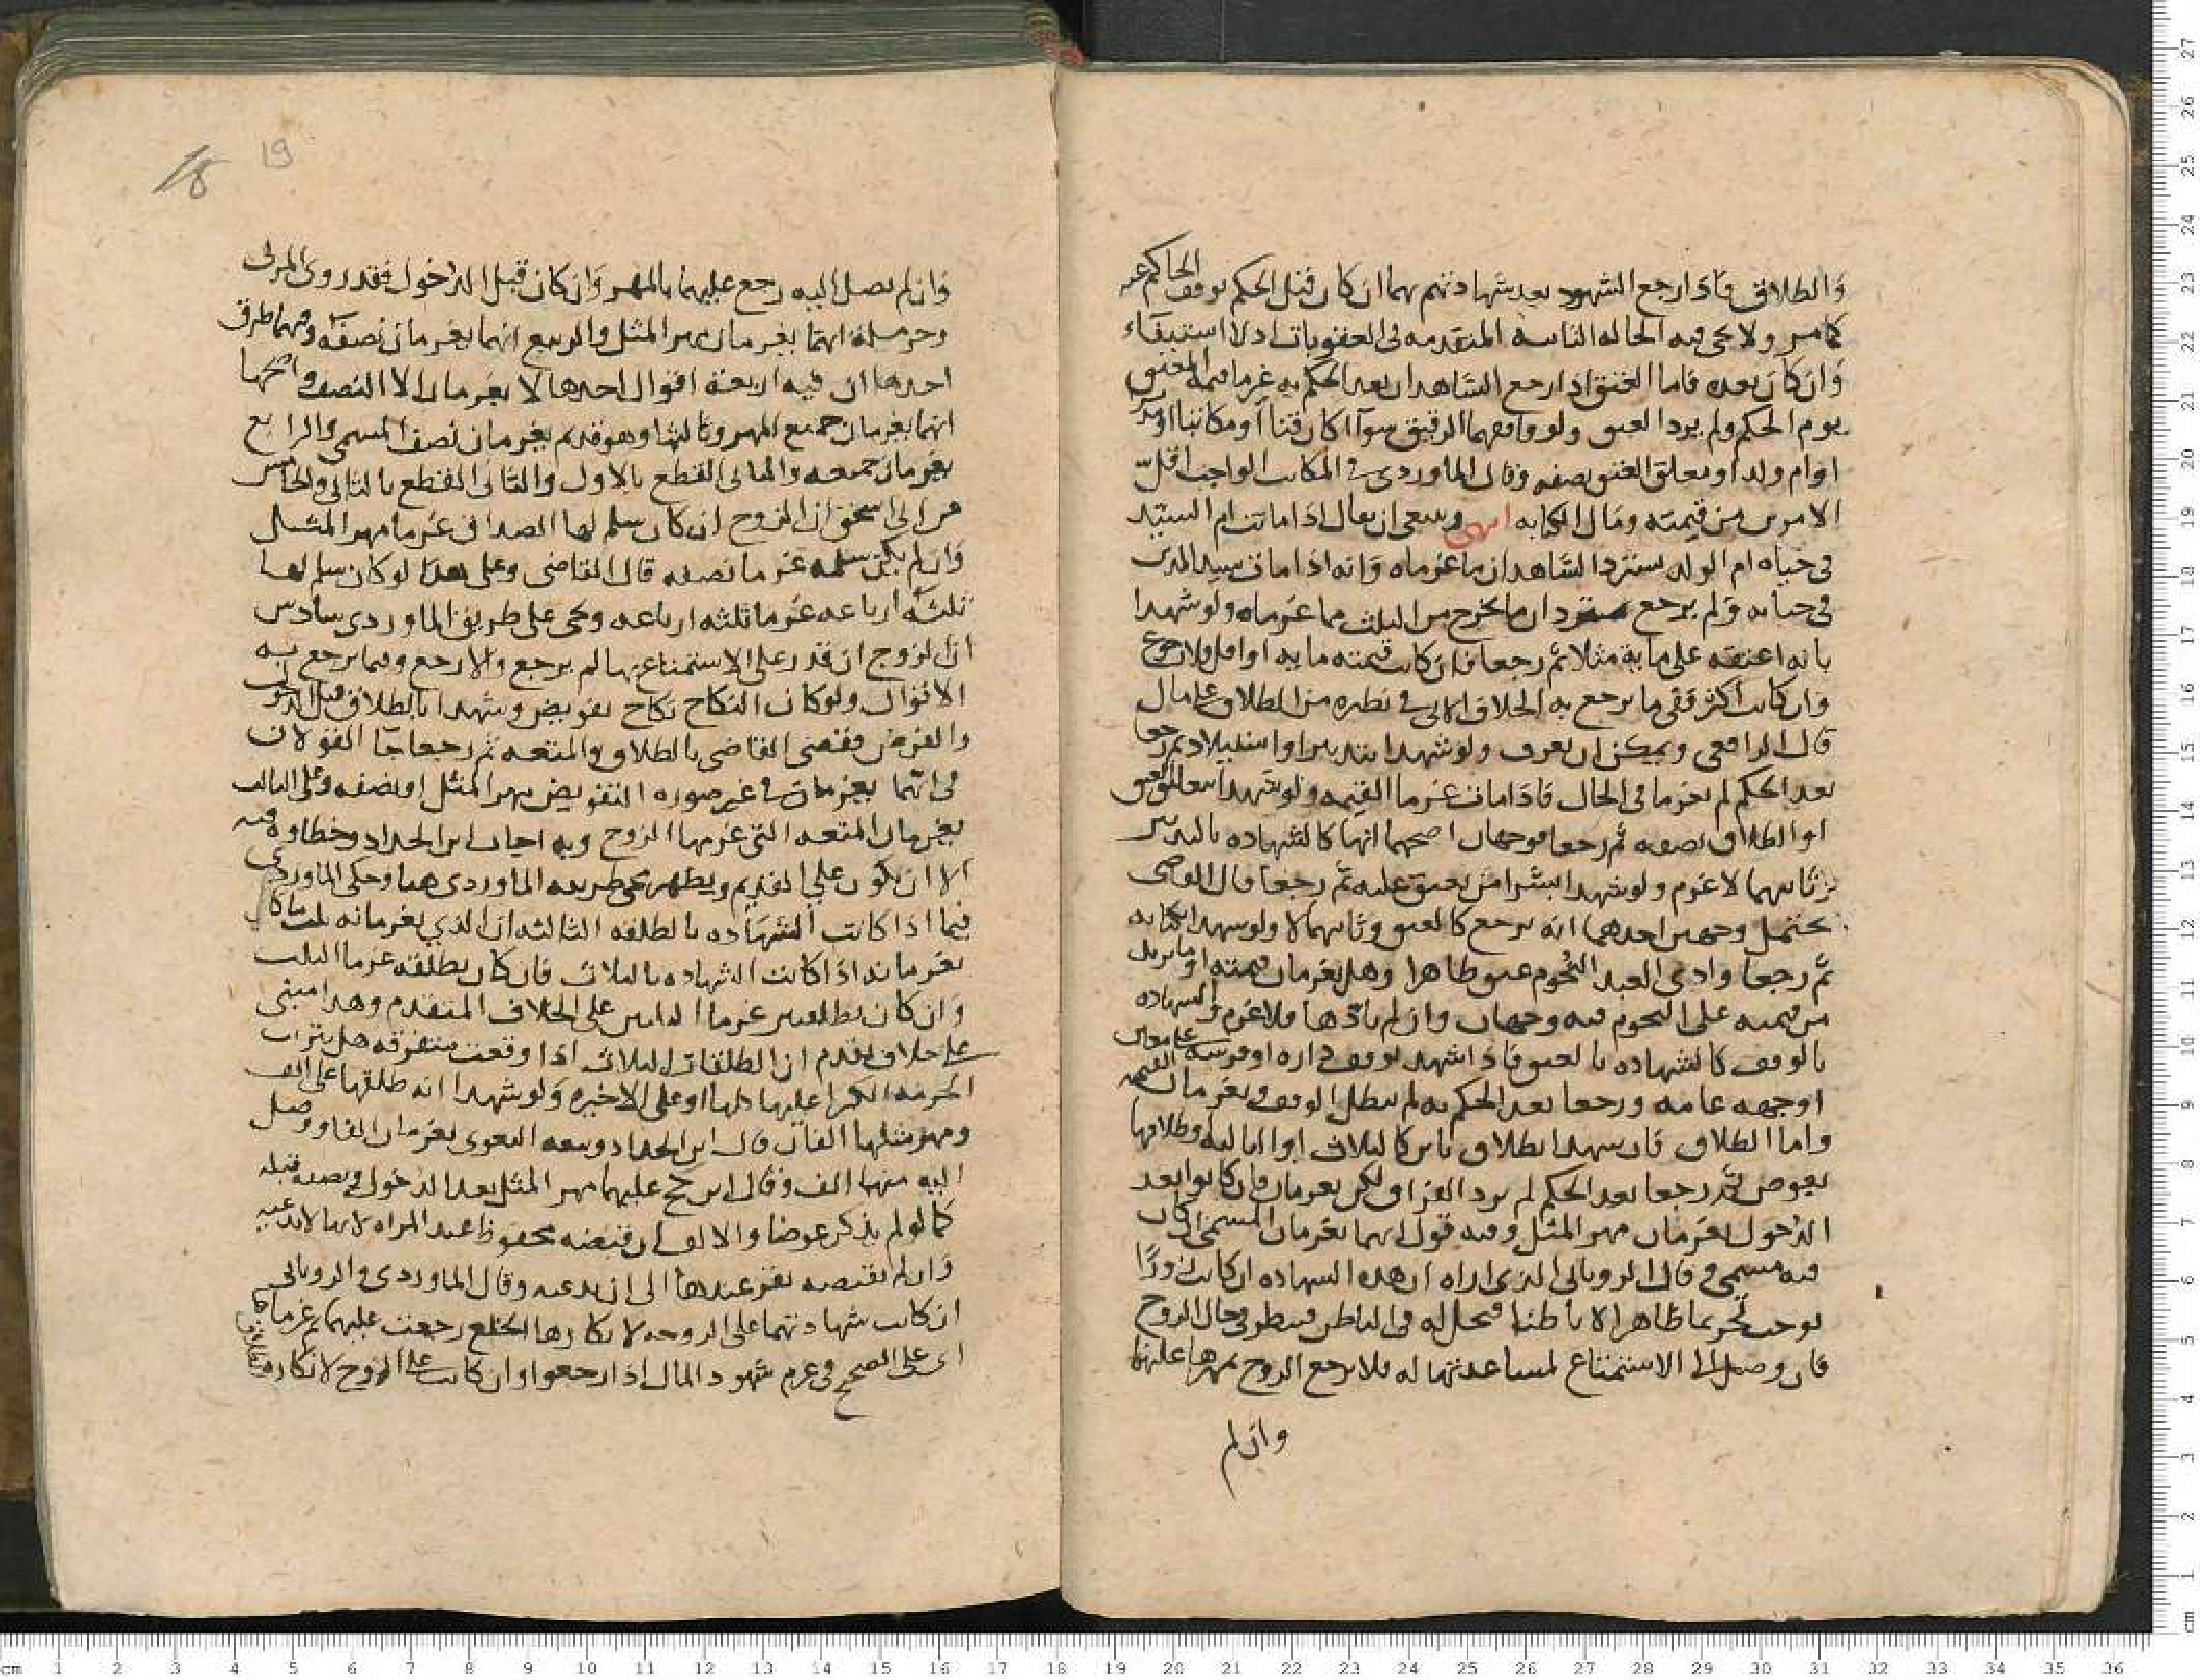 والطلاق فاذا رجع الشهود بعد شهادتهم بهما ان كان قبل الحكم توقف الحاكم عنه
كما مر ولا يجى فيه الحالة الثانية المتقدمه فى العقوبات اذ لا استيفاء
وان كان بعده فاما العتق اذا رجع الشاهدان بعد الحكم به غرما قيمة المعتق
يوم الحكم ولم يرد العتق ولو وافقهما الرقيق سوآا كان قنا او مكاتبا او مدبرا
او ام ولد او معلق العتق بصفه وقال الماوردى فى المكاتب الواجب اقل
الامرين من قيمته ومال الكتابه انتهى وينبغى ان يقال اذا ماتت ام السيد
فى حياة ام الولد يسترد الشاهدان ما غرماه وانه اذا مات سيد المدبر
فى حياته ولم يرجع يستردان ما يخرج من الثلث مما غرماه ولو شهدا
بانه اعتقه على مايه مثلا ثم رجعا فان كانت قيمته مايه او اقل فلا رجوع
وان كانت اكثر ففى ما يرجع به الخلاف الاتى فى نظيره من الطلاق على مال
قال الرافعى ويمكن ان يعرف ولو شهدا بتدبير او استيلاد ثم رجعا
بعد الحكم لم يغرما فى الحال فاذا مات غرما القيمه ولو شهدا بتعليق العتق
او الطلاق بصفه ثم رجعا فوجهان اصحهما انها كالشهاده بالتدبير
وثانيهما لا غرم ولو شهدا بشرا من يعتق عليه ثم رجعا قال القاضى
يحتمل وجهين احدهما انه يرجع كالعتق وثانيهما لا ولو شهدا بكتابه
ثم رجعا وادى العبد النجوم عتق ظاهرا وهل يغرمان قيمته او ما يزيد
من قيمته على النجوم فيه وجهان وان لم يؤدها فلا غرم والشهاده
بالوقف كالشهاده بالعتق فاذا شهدا بوقف داره او فرسه على معين
او جهه عامه ورجعا بعد الحكم به لم يبطل الوقف ويغرمان القيمه
واما الطلاق فان شهدا بطلاق باين كالثلاث او الثالثه وطلاقها
بعوض ثم رجعا بعد الحكم لم يرد الفراق لكن يغرمان فان كانوا بعد
الدخول يغرمان مهر المثل وفيه قول انهما يغرمان المسمى ان كان
فيه مسمى وقال الرويانى الذى اراه ان هذه الشهاده ان كانت زورًا
توجب تحريما ظاهرا لا باطنا فتحل له فى الباطن فينظر فى حال الزوج
فان وصل الى الاستمتاع لمساعدتها له فلا يرجع الزوج بمهرها عليهما
وان لم
19
18
وان لم يصل اليه رجع عليهما بالمهر وان كان قبل الدخول فقد روى المزنى
وحرمله انهما يغرمان مهر المثل والربيع انهما يغرمان نصفه وفيهما طرق
احدها ان فيه اربعة اقوال احدها لا يغرمان الا النصف واصحها
انهما يغرمان جميع المهر وثالثها وهو قديم يغرمان نصف المسمى والرابع
يغرمان جميعه والثانى القطع بالاول والثالث القطع بالثانى والخامس
عن ابى اسحق ان الزوج ان كان سلم لها الصداق غرما مهر المثل
وان لم يكن سلمه غرما نصفه قال القاضى وعلى هذا لو كان سلم لها
ثلثة ارباعه غرما ثلثه ارباعه ويجى على طريق الماوردى سادس
ان الزوج ان قدر على الاستمتاع بها لم يرجع والا رجع وفيما يرجع به
الاقوال ولو كان النكاح نكاح تفويض وشهدا بالطلاق قبل الدخول
والفرض فقضى القاضى بالطلاق والمتعه ثم رجعا جآ القولان
فى انهما يغرمان فى غير صوره التفويض مهر المثل او نصفه وعلى الثالث
يغرمان المتعه التى غرمها الزوج وبه اجاب ابن الحداد وخطاوه فيه
الا ان يكون على القديم ويظهر مجى طريقه الماوردى هنا وحكى الماوردى
فيما اذا كانت الشهاده بالطلقه الثالثه ان الذي يغرمانه ثلث ما كان
يغرمانه اذا كانت الشهاده بالثلاث فان كان بطلقه غرما الثلث
وان كان بطلقتين غرما الثلثين على الخلاف المتقدم وهذا مبنى
على خلاف تقدم ان الطلقات الثلاث اذا وقعت متفرقه هل يترتب
الحرمه الكبرا عليها كلها او على الاخيره ولو شهدا انه طلقها على الف
ومهر مثلها الفان قال ابن الحداد وتبعه البغوى يغرمان الفا ووصل
اليه منها الف وقال ابن كج عليهما مهر المثل بعد الدخول ونصفه قبله
كما لو لم يذكر عوضا والالف ان قبضه محفوظ عند المراه لانها لا تدعيه
وان لم يقبضه يقر عندها الى ان يدعيه وقال الماوردى والرويانى
ان كانت شهادتهما على الزوجه لانكارها الخلع رجعت عليهما بما غرما
اى على الصحيح فى غرم شهود المال اذا رجعوا وان كانت على الزوج لانكاره